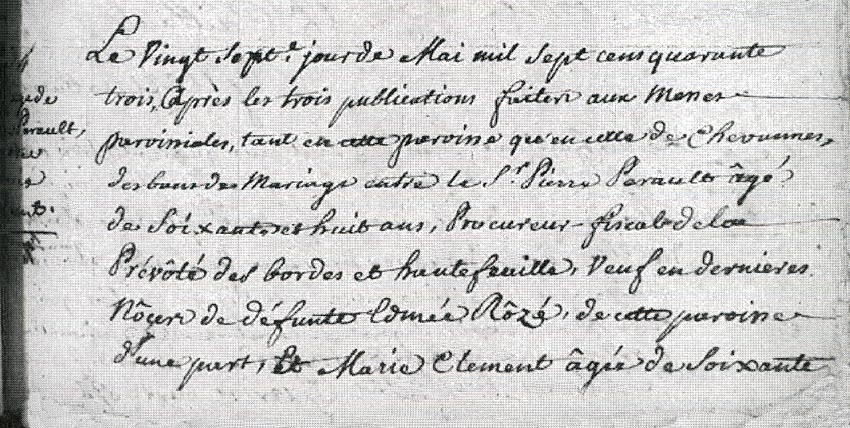 Le Vingt sept.e jour de Mai mil sept cens quarante
trois, Après les trois publications faites aux Messes
paroissiales, tant en cette paroisse qu'en celle de Chevannes,
des bans de Mariage entre le S.r Pierre Perault âgé
de Soixante et huit ans, Procureur-fiscal de la
Prévôté des bordes et hautefeuille, Veuf en dernieres
Nôces de défunte Edmée Rôzé, de cette paroisse
d'une part, Et Marie Clement âgée de Soixante
Perault,